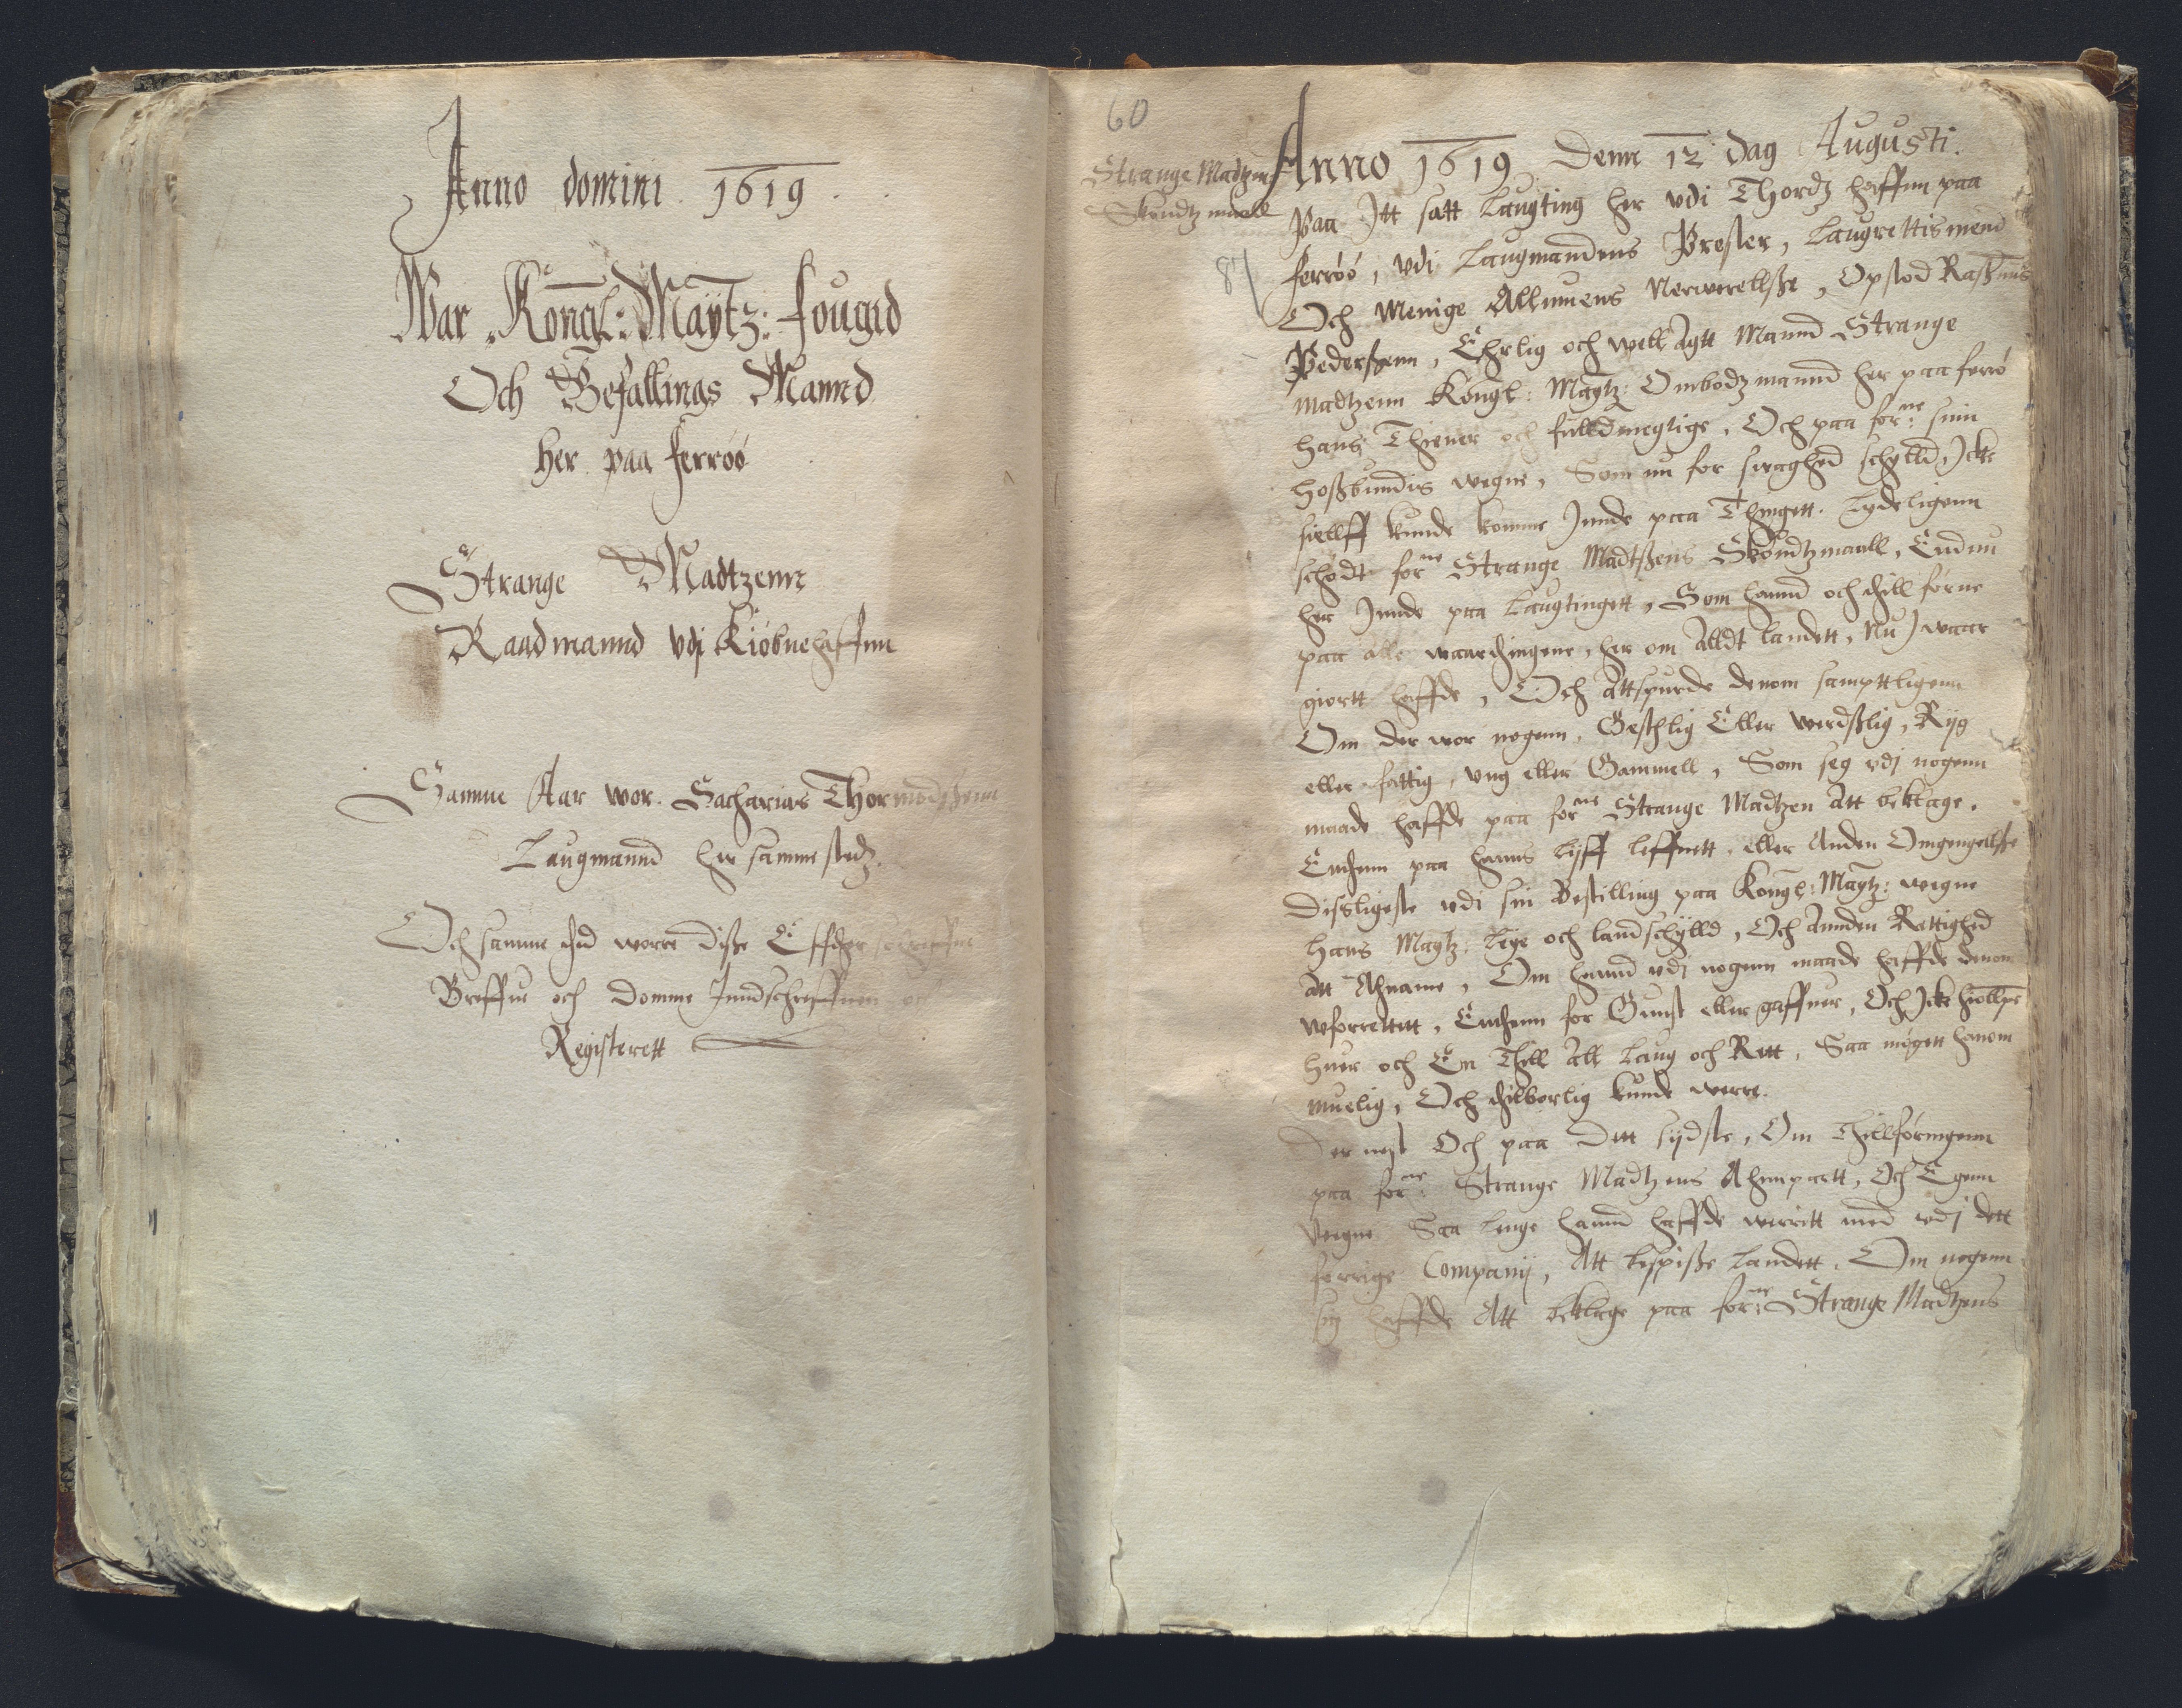 Anno domini 1619.
War Kongl: Maÿtz: fougid
Och Befallings Mannd
her paa ferröö
Strange Madtzenn
Raadmannd vdj Kiöbnehaffnn
Samme Aar wor. Sacharias Thormodsßenn
Laugmannd her samme stedz.
Och samme tid worre disse Effther schreffne
Breffue och domme Inndschreffuen och
Registerett
60
Strange Madtzens
Skudtzmaall
87
Anno 1619 Denn 12 dag Augusti.
Paa Itt satt Laugting her vdi Thordtz haffnn paa
ferröö, vdi Laugmandens Prester, Laugrettismend
Och Menige Allmuens Nerwerellsse, Opstod Rasmus
Pederssenn, Ehrlig och well Agtt Mannd Strange
Madtzenn Kongl: Maytz: Ombodzmannd her paa ferrö
hans Thiener och fulldmegtige, Och paa forne: sinn
hossbundis wegne, Som nu for swaghed schylld, Icke
siellff kunde komme Innde paa Thingett. Lydeligenn
schödt forne Strange Madtssens Skudtzmaall, Endnu
her Innde paa Laugtingett, Som hannd och thill forne
paa alle waarthingene, her om Alldt landett, Nu J waar
giortt haffde, Och Attspurde denom sampttligenn
Om der wor nogenn, Gesthlig Eller werdsslig, Rijg
eller fattig, vng eller Gammell, Som seg vdj nogenn
maade haffde paa forne Strange Madtzen Att beklage.
Enthenn paa hanns lijff leffnett, eller Anden Omgengellsse
disligeste vdi sin Bestilling paa Kongl: Maytz: wegne
hans Maytz: leye och landschylld, Och Annden Rettighed
Att Ahname, Om hannd vdj nogenn maade haffde denom
wforrettitt, Enthenn for Gunst eller gaffuer, Och Icke hiollpe
huer och En Thill All Laug och Rett, Saa mögett hanom
muelig, Och thilborlig kunde werre.
Der nest Och paa Dett sijdste, Om Thillföringenn
paa forne: Strange Madtzens Ahnpartt, Och Egenn
wegne Saa lenge hannd haffde werritt med vdj dett
forrige Companij, Att bespisse Landett. Om nogenn
sig haffde Att beklage paa forne: Strange Madtzens